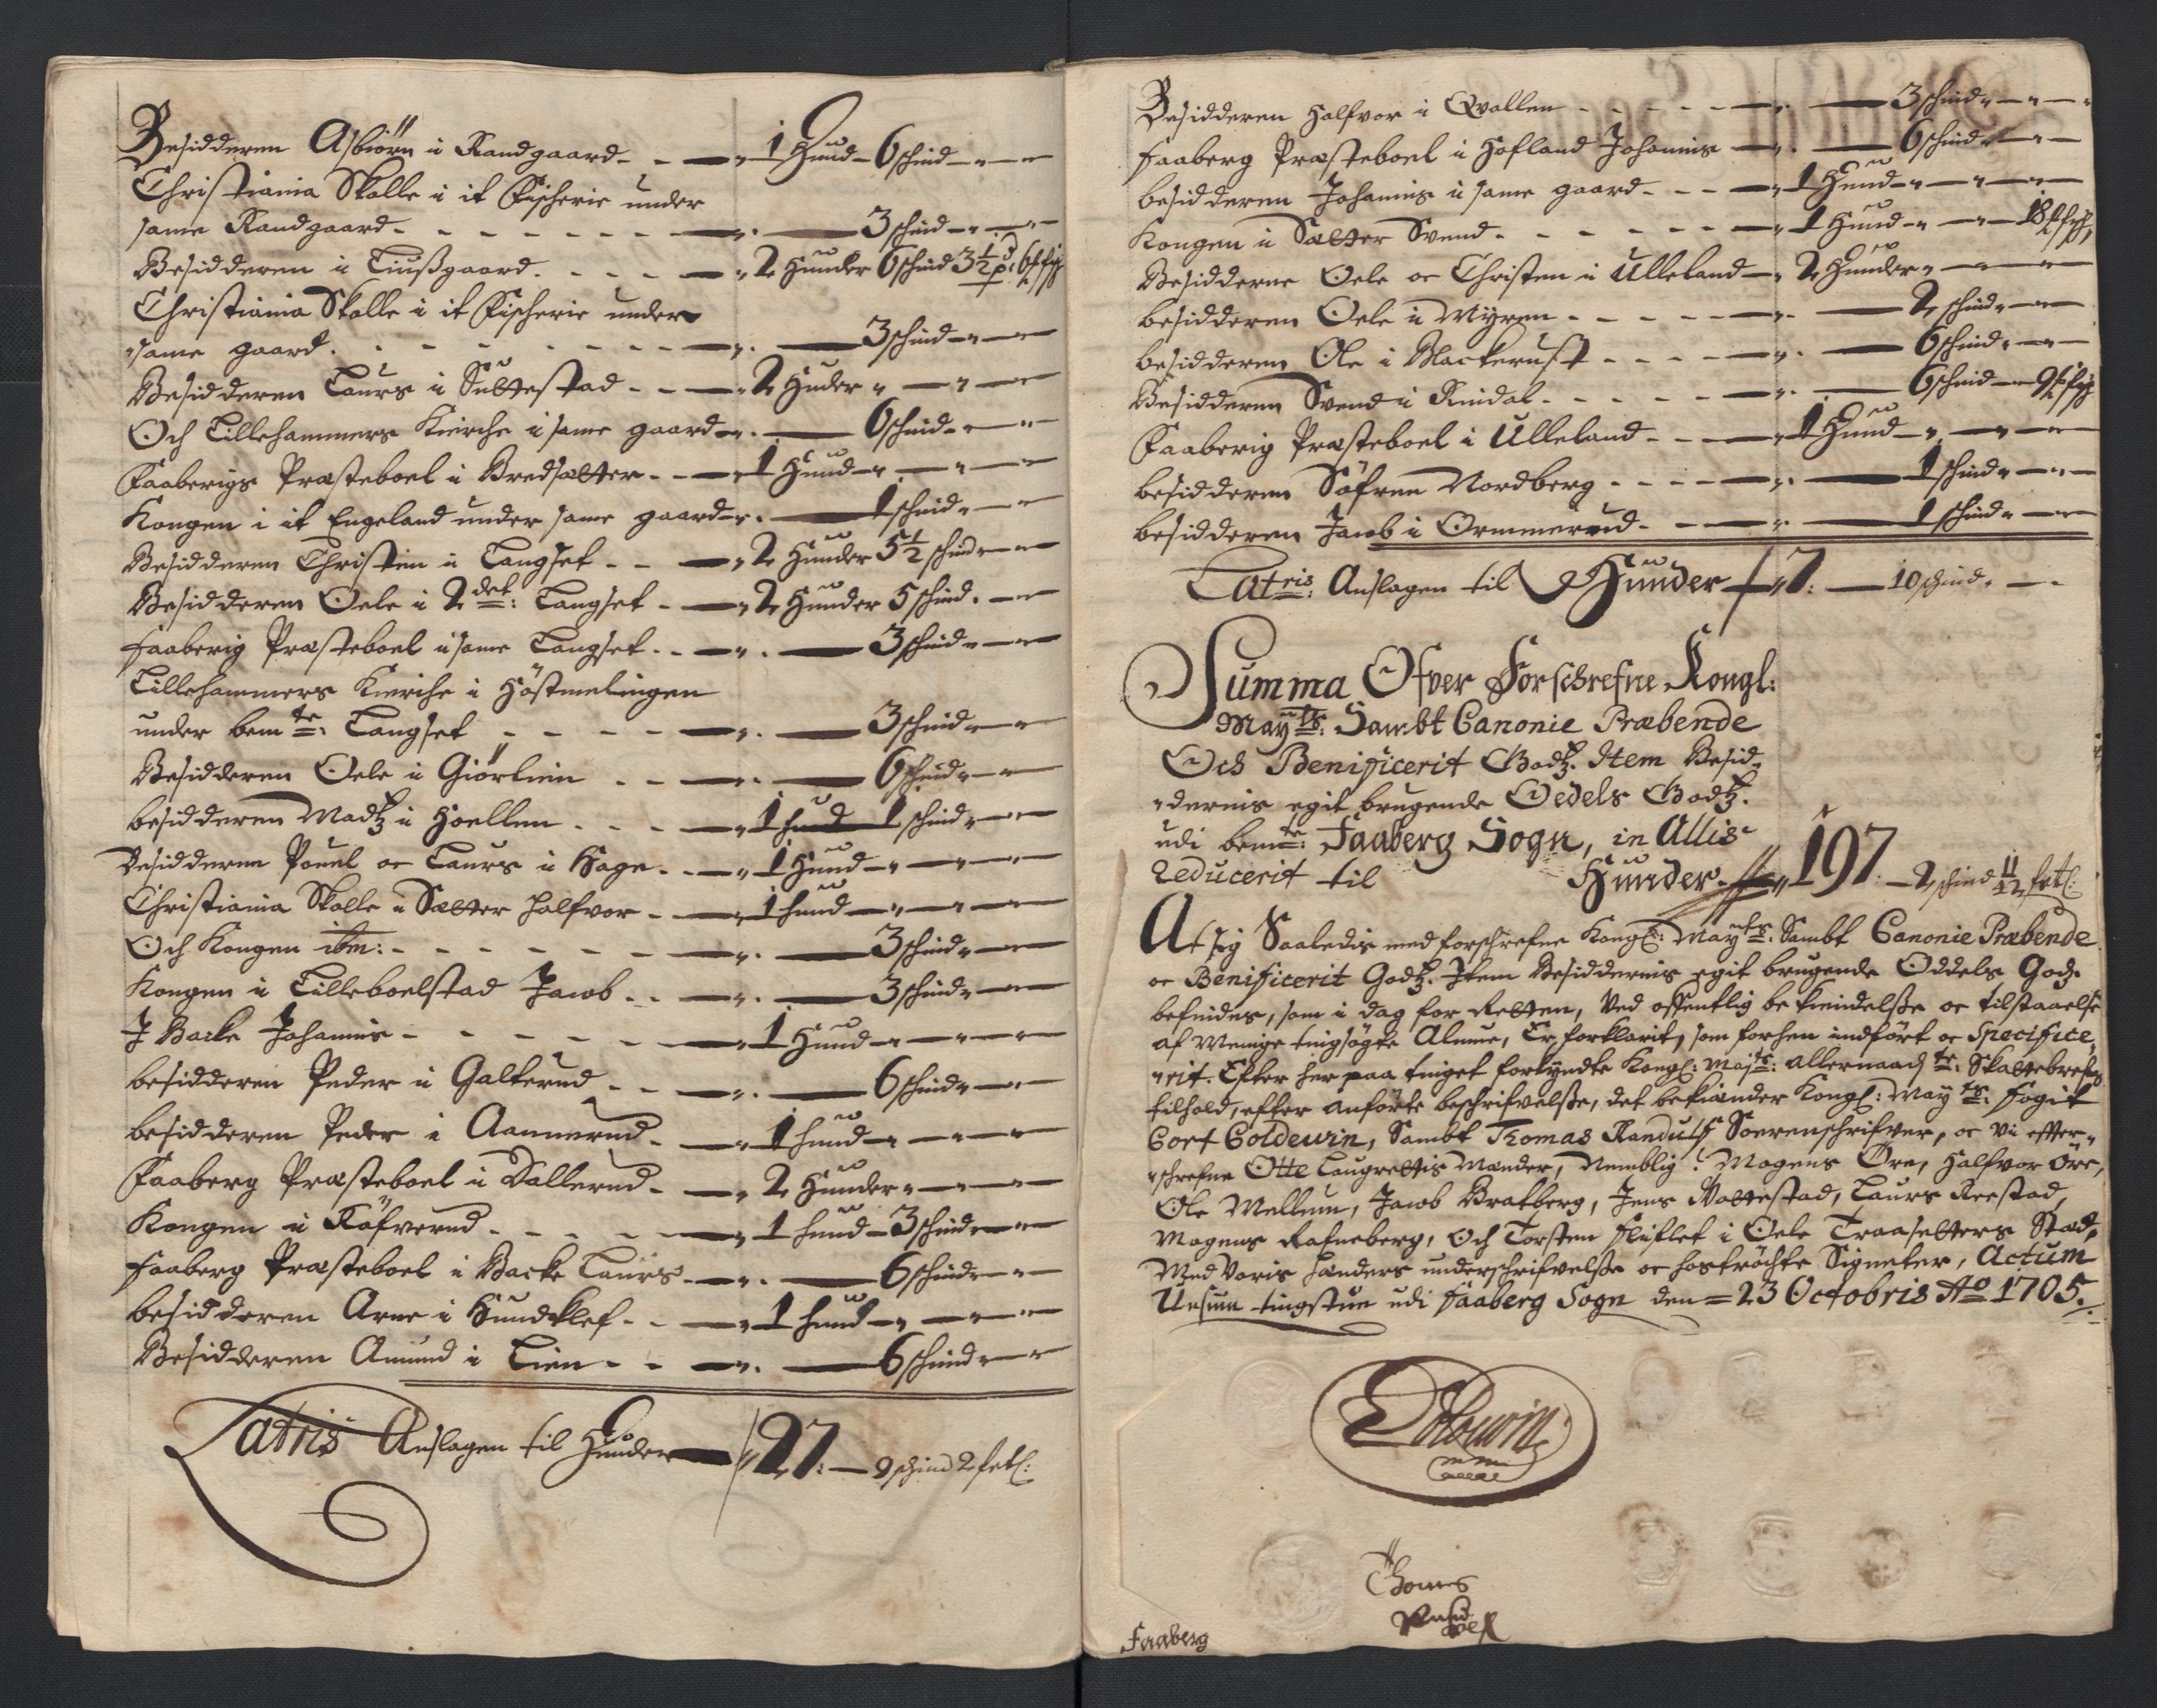 Besidderen Asbiörn i Randgaard - 1 Hud - 6 schind
Christiania Skolle i it Fischerie under
same Randgaard - 3 schind
Besidderen i Liusgaard - 2 Hunder 6 schind 3½ p:
Christiania Skolle i it Fischerie under
same gaard - 3 schind
Besidderen Laurs i Suttestad - 2 Huder
Och Lillehammers Kierche i same gaard - 6 schind
Faaberigs Præsteboel i Bredsætter - 1 Hund
Kongen i it Engeland under same gaard - 1 schind
Besidderen Christen i Langset - 2 Hunder 5½ schind
Besidderen Oele i 2det: Langset - 2 Hunder 5 schind
Faaberig Præsteboel i same Langset - 3 schind
Lillehammers Kierche i Höstmelingen
under bemte: Langset - 3 schind
Besidderen Oele i Giörlien - 6 schind
besidderen Madtz i Hoellen - 1 hud 1 schind
Besidderen Pouel oc Laurs i Hage - 1 Hund
Christiania Skolle i Sætter Halfvor - 1 hund
Och Kongen ibm: - 3 schind
Kongen i Lilleboelstad Jacob - 3 schind
J Backe Johannis - 1 Hund
besidderen Peder i Galterud - 6 schind
besidderen Peder i Aannerud - 1 hund
Faaberg Præsteboel i Dallerud - 2 Hunder
Kongen i Röfverud - 1 hund - 3 schind
Faaberg Præsteboel i Backe Laurs - 6 schind
besidderen Arne i Hundklef - 1 hund
Besidderen Amund i Lien - 6 schind
Latris Anslagen til Hunder 27: - 9 schind 2 fetl:
Besidderen Halfvor i Qvallen - 3 schind
Faaberg Præsteboel i Hofland Johannis - 6 schind
besidderen Johannis i same gaard - 1 Hund
Kongen i Sætter Svend - 1 Hund - 18
Besidderne Oele oc Christen i Ulleland - 2 Hunder
besidderen Oele i Myren - 2 schind
besidderen Ole i Mackerust - 6 schind
Besidderen Svend i Rindal - 6 schind - 9
Faaberig Præsteboel i Ulleland - 1 Hund
besidderen Söfren Nordberg - 1 schind
besidderen Jacob i Ormmerud - 1 schind
Latris: Anslagen til Hunder 7: - 10 schind
Summa Ofver Forschrefne Kongl:
Mayts: Sambt Canonie Præbende
Och Benificerit Godtz. Item Besid-
dernis egit brugende Oedels Godtz.
udi bemte: Faaberg Sogn, in Allis
Reducerit til Hunder 197 - 2 schind 11/12 fetl:
At sig Saaledis med forschrefne Kongl: Mayts: Sambt Canonie Præbende
oc Benificerit Godtz. Item Besiddernis egit brugende Oddels Godz.
befindes, som i dag for Retten, Ved offentlig bekiendelsse oc tilstaaelse
af Menige tingsøgte Almue, Er forklarit, som forhen indført oc Specifice-
rit. Efter her paa tinget forkyndte Kongl: Majts: allernaadste: Skattebrefs
tilhold, effter anförte beschrifvelsse, det bekiænder Kongl: Mayts: Fogit
Cort Coldewin, Sambt Thomas Randulf Sorenschrifver, oc Vi effter-
schrefne Otte Laugrettis Mænder, Nemblig: Mogens Öre, Halfvor Öre,
Ole Mellum, Jacob Bratberg, Jens Vottestad, Laurs Reestad,
Mogens Rafneberg, Och Torsten Fliflet i Oele Traasetters Stæd,
Med Voris Hænders underschrifvelsse oc hoströchte Signeter, Actum
tingstue udi Faaberg Sogn den = 23 Octobris Ao 1705.
Coldewin
Thomas
Randulf
Faaberg